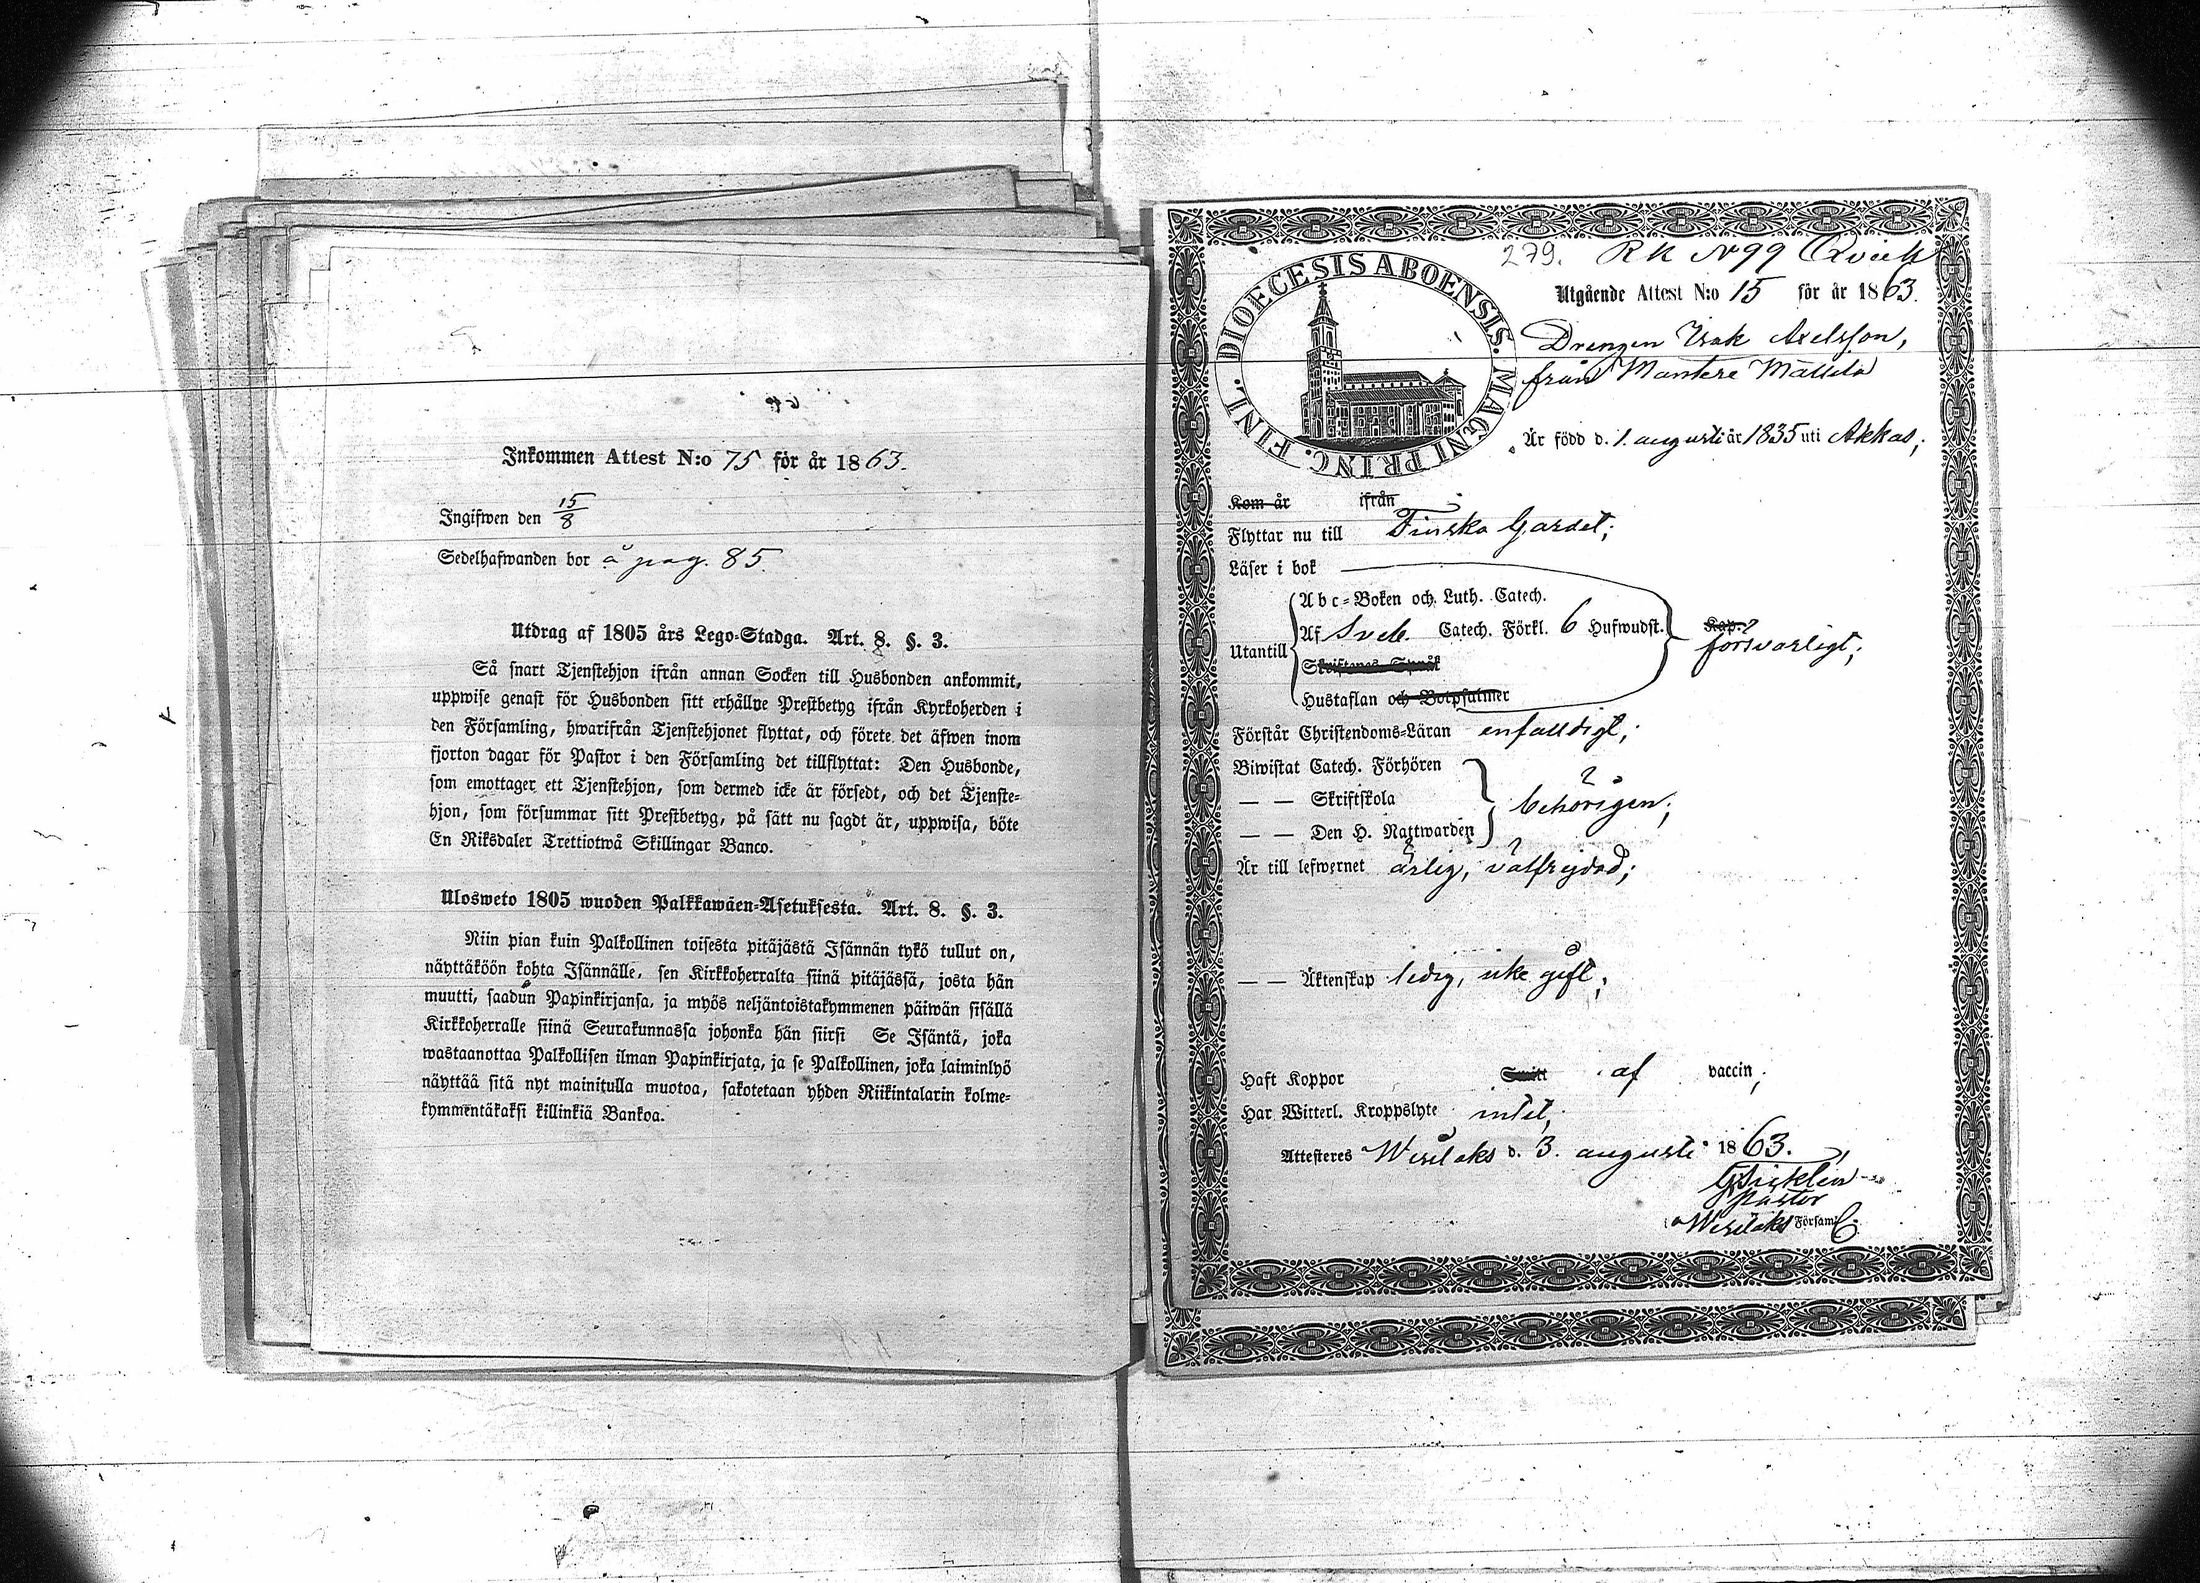 Inkommen Attest N:o 75 för år 1863.
Ingifwen den 15/8
Sedelhafwanden bor å pag. 85.
Utdrag af 1805 års Lego-Stadga. Art. 8. §. 3.
Så snart Tjenstehjon ifrån annan Socken till Husbonden ankommit,
uppwise genast för Husbonden sitt erhållne Prestbetyg ifrån Kyrkoherden i
den Församling, hwarifrån Tjenstehjonet flyttat, och förete det äfwen inom
fjorton dagar för Pastor i den Församling det tillflyttat: Den Husbonde,
som emottager ett Tjenstehjon, som dermed icke är försedt, och det Tjenste-
hjon, som försummar sitt Prestbetyg, på sätt nu sagdt är, uppwisa, böte
En Riksdaler Trettiotwå Skillingar Banco.
Ulosweto 1805 wuoden Palkkawäen-Asetuksesta. Art. 8. §. 3.
Niin pian kuin Palkollinen toisesta pitäjästä Isännän tykö tullut on,
näyttäköön kohta Isännälle, sen Kirkkoherralta siinä pitäjässä, josta hän
muutti, saadun Papinkirjansa, ja myös neljäntoistakymmenen päiwän sisällä
Kirkkoherralle siinä Seurakunnassa johonka hän siirsi Se Isäntä, joka
wastaanottaa Palkollisen ilman Papinkirjata, ja se Palkollinen, joka laiminlyö
näyttää sitä nyt mainitulla muotoa, sakotetaan yhden Riikintalarin kolme-
kymmentäkaksi killinkiä Bankoa.
279. RK N 99
DIOECESIS ABOENSIS. MAGNI PRINC. FINL.
Utgående Attest N:o 15 för år 1863.
Drengen Isak Axelsson,
från Mantere Mattila
Är född d. 1. augusti år 1835 uti Akkas;
Kom år ifrån
Flyttar nu till Finska Gardet;
Läser i bok
Abc-Boken och Luth. Catech.
Utantill Af Sveb. Catech. Förkl. 6 Hufwudst. Kap. försvarligt;
Skriftenes Språk
Hustaflan och Botpsalmer
Förstår Christendoms-Läran enfalldigt;
Biwistat Catech. Förhören
— — Skriftskola behörigen;
— — Den H. Nattwarden
Är till lefwernet ärlig, välfrejdad;
— — Äktenskap ledig, icke gift;
Haft Koppor Smitt af vaccin;
Har Witterl. Kroppslyte intet;
Attesteres Wesilaks d. 3. augusti 1863.
Pastor
Wesilaks Församl.